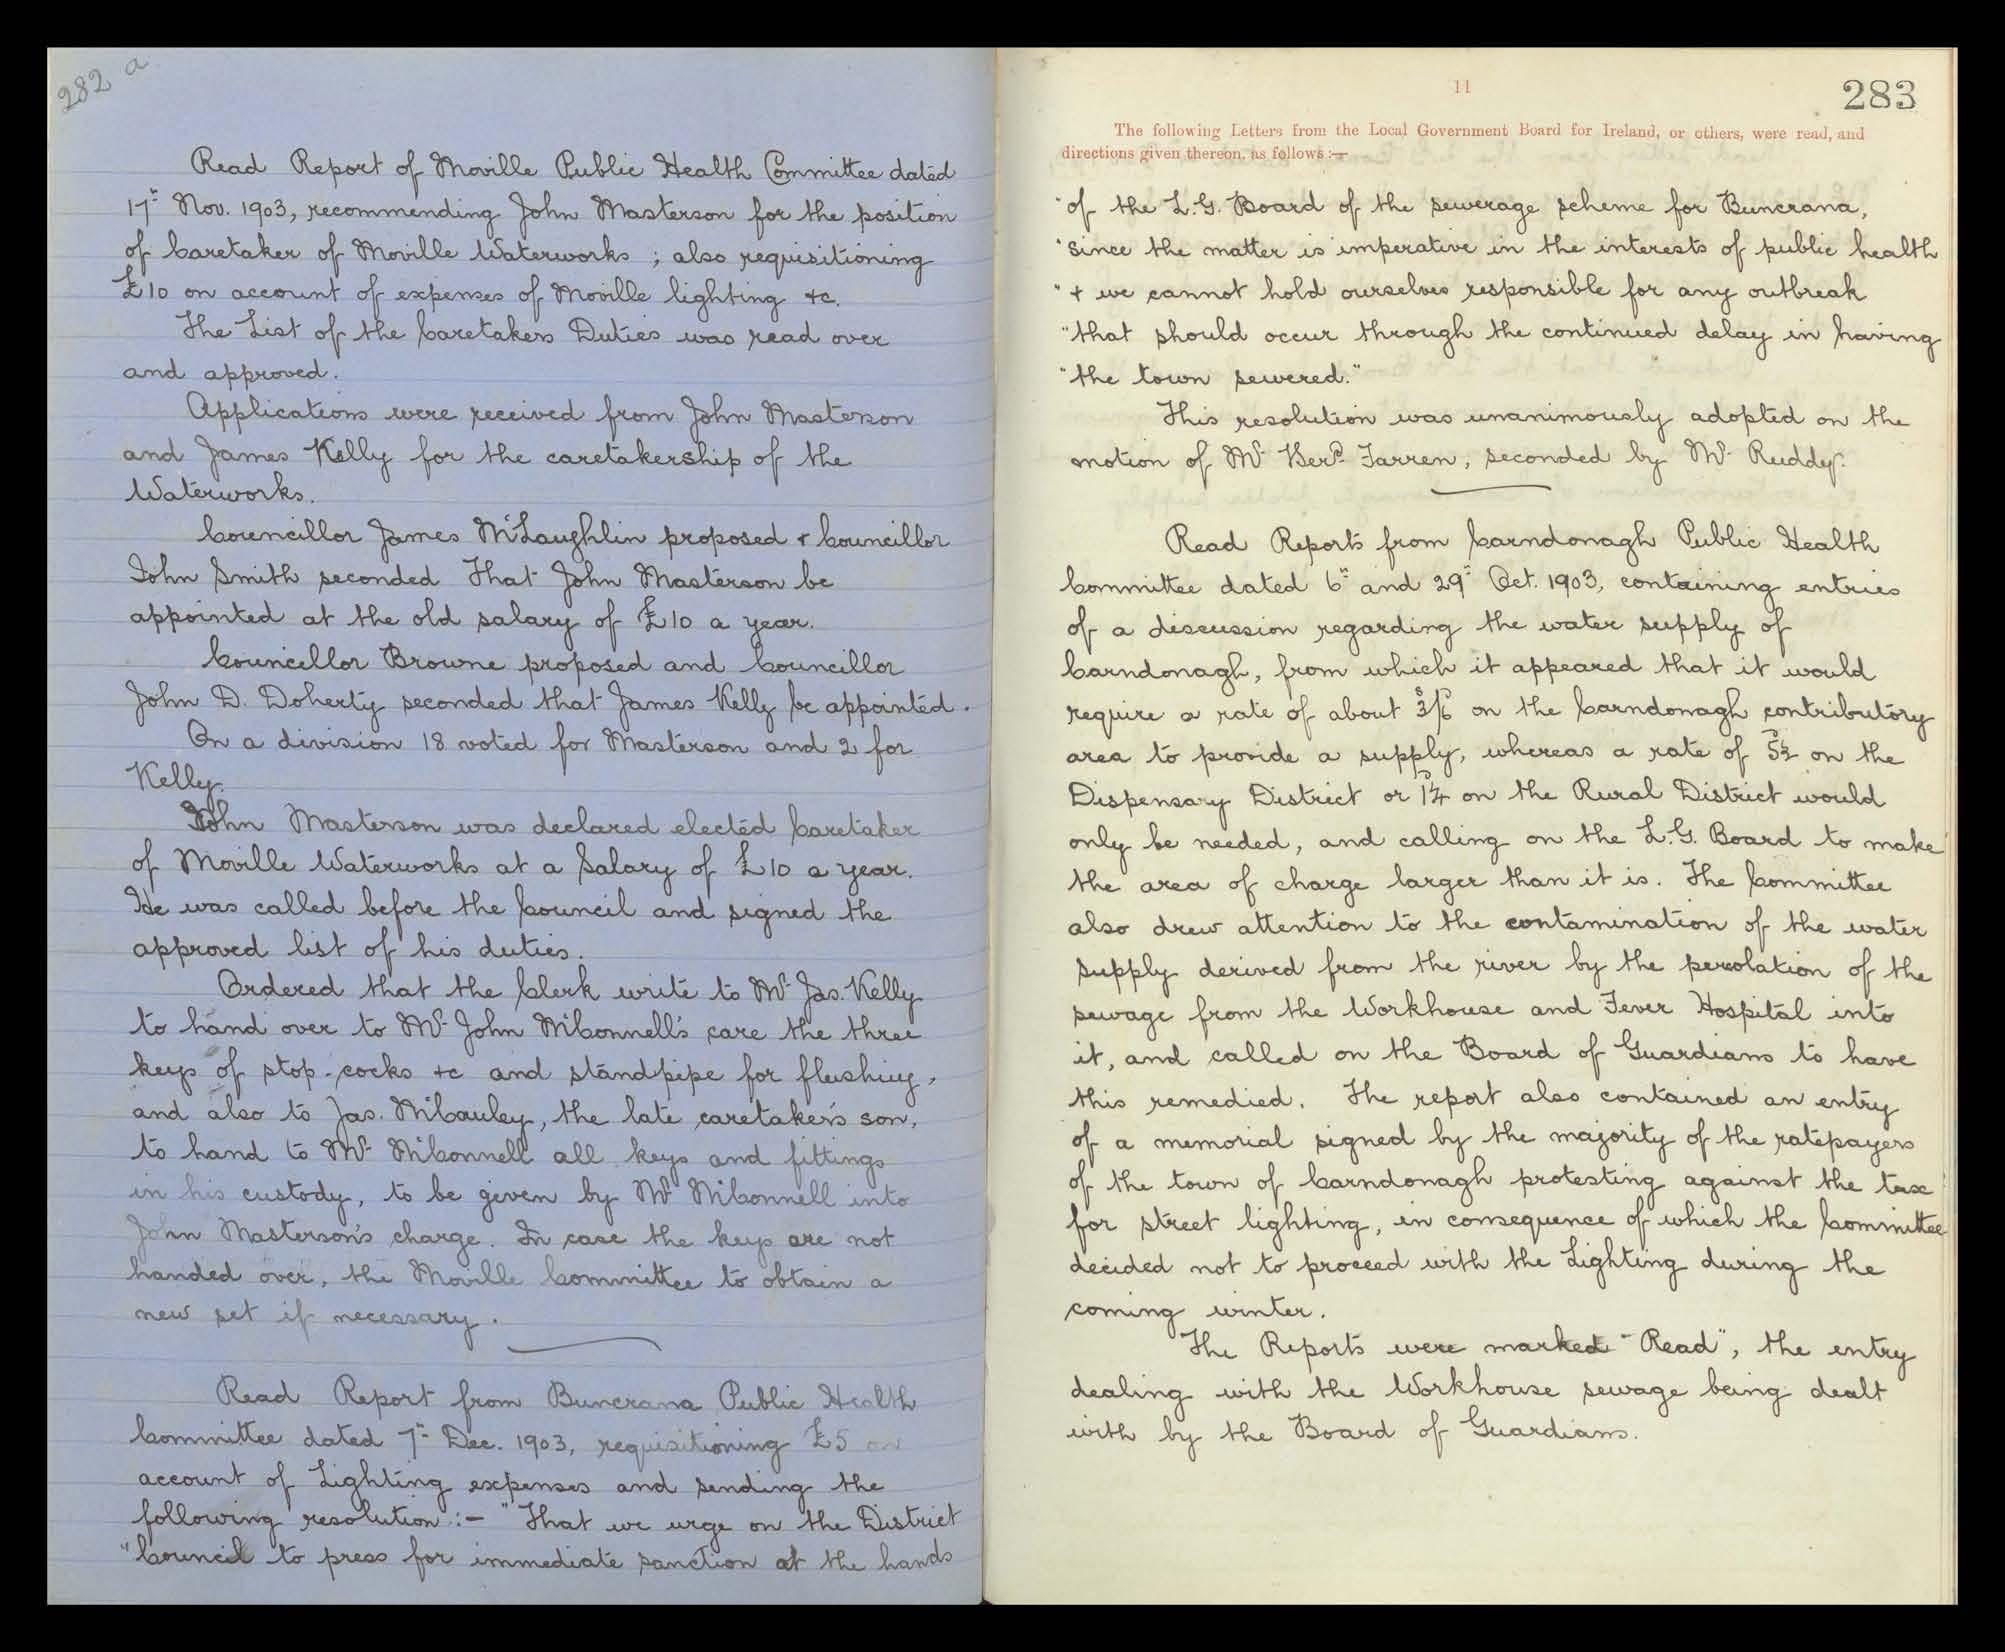 282 a
Read Report of Moville Public Health Committee dated
17th Nov. 1903, recommending John Masterson for the position
of Caretaker of Moville Waterworks ; also requisitioning
£10 on account of expenses of Moville lighting &c.
The List of the Caretakers Duties was read over
and approved.
Applications were received from John Masterson
and James Kelly for the caretakership of the
Waterworks.
Councillor James McLaughlin proposed & Councillor
John Smith seconded That John Masterson be
appointed at the old salary of £10 a year.
Councillor Browne proposed and Councillor
John D. Doherty seconded that James Kelly be appointed.
On a division 18 voted for Masterson and 2 for
Kelly.
John Masterson was declared elected Caretaker
of Moville Waterworks at a Salary of £10 a year.
He was called before the Council and signed the
approved list of his duties.
Ordered that the Clerk write to Mr Jas. Kelly
to hand over to Mr John McConnell's care the three
keys of stop-cocks &c and standpipe for flushing,
and also to Jas. McCauley, the late caretaker's son,
to hand to Mr McConnell all keys and fittings
in his custody, to be given by Mr McConnell into
John Masterson's charge. In case the keys are not
handed over, the Moville Committee to obtain a
new set if necessary.
Read Report from Buncrana Public Health
Committee dated 7th Dec. 1903, requisitioning £5 on
account of Lighting expenses and sending the
following resolution :- "That we urge on the District
"Council to press for immediate sanction at the hands
11
283
The following Letters from the Local Government Board for Ireland, or others, were read, and
directions given thereon, as follows :—
"of the L.G. Board of the sewerage scheme for Buncrana,
"since the matter is imperative in the interests of public health
"& we cannot hold ourselves responsible for any outbreak
"that should occur through the continued delay in having
"the town sewered."
This resolution was unanimously adopted on the
motion of Mr Berd Farren, seconded by Mr Ruddy.
Read Reports from Carndonagh Public Health
Committee dated 6th and 29th Oct. 1903, containing entries
of a discussion regarding the water supply of
Carndonagh, from which it appeared that it would
require a rate of about 3s/6d on the Carndonagh contributory
area to provide a supply, whereas a rate of 5½d on the
Dispensary District or 1¼d on the Rural District would
only be needed, and calling on the L.G. Board to make
the area of charge larger than it is. The Committee
also drew attention to the contamination of the water
supply derived from the river by the percolation of the
sewage from the Workhouse and Fever Hospital into
it, and called on the Board of Guardians to have
this remedied. The report also contained an entry
of a memorial signed by the majority of the ratepayers
of the town of Carndonagh protesting against the tax
for street lighting, in consequence of which the Committee
decided not to proceed with the Lighting during the
coming winter.
The Reports were marked "Read", the entry
dealing with the Workhouse sewage being dealt
with by the Board of Guardians.